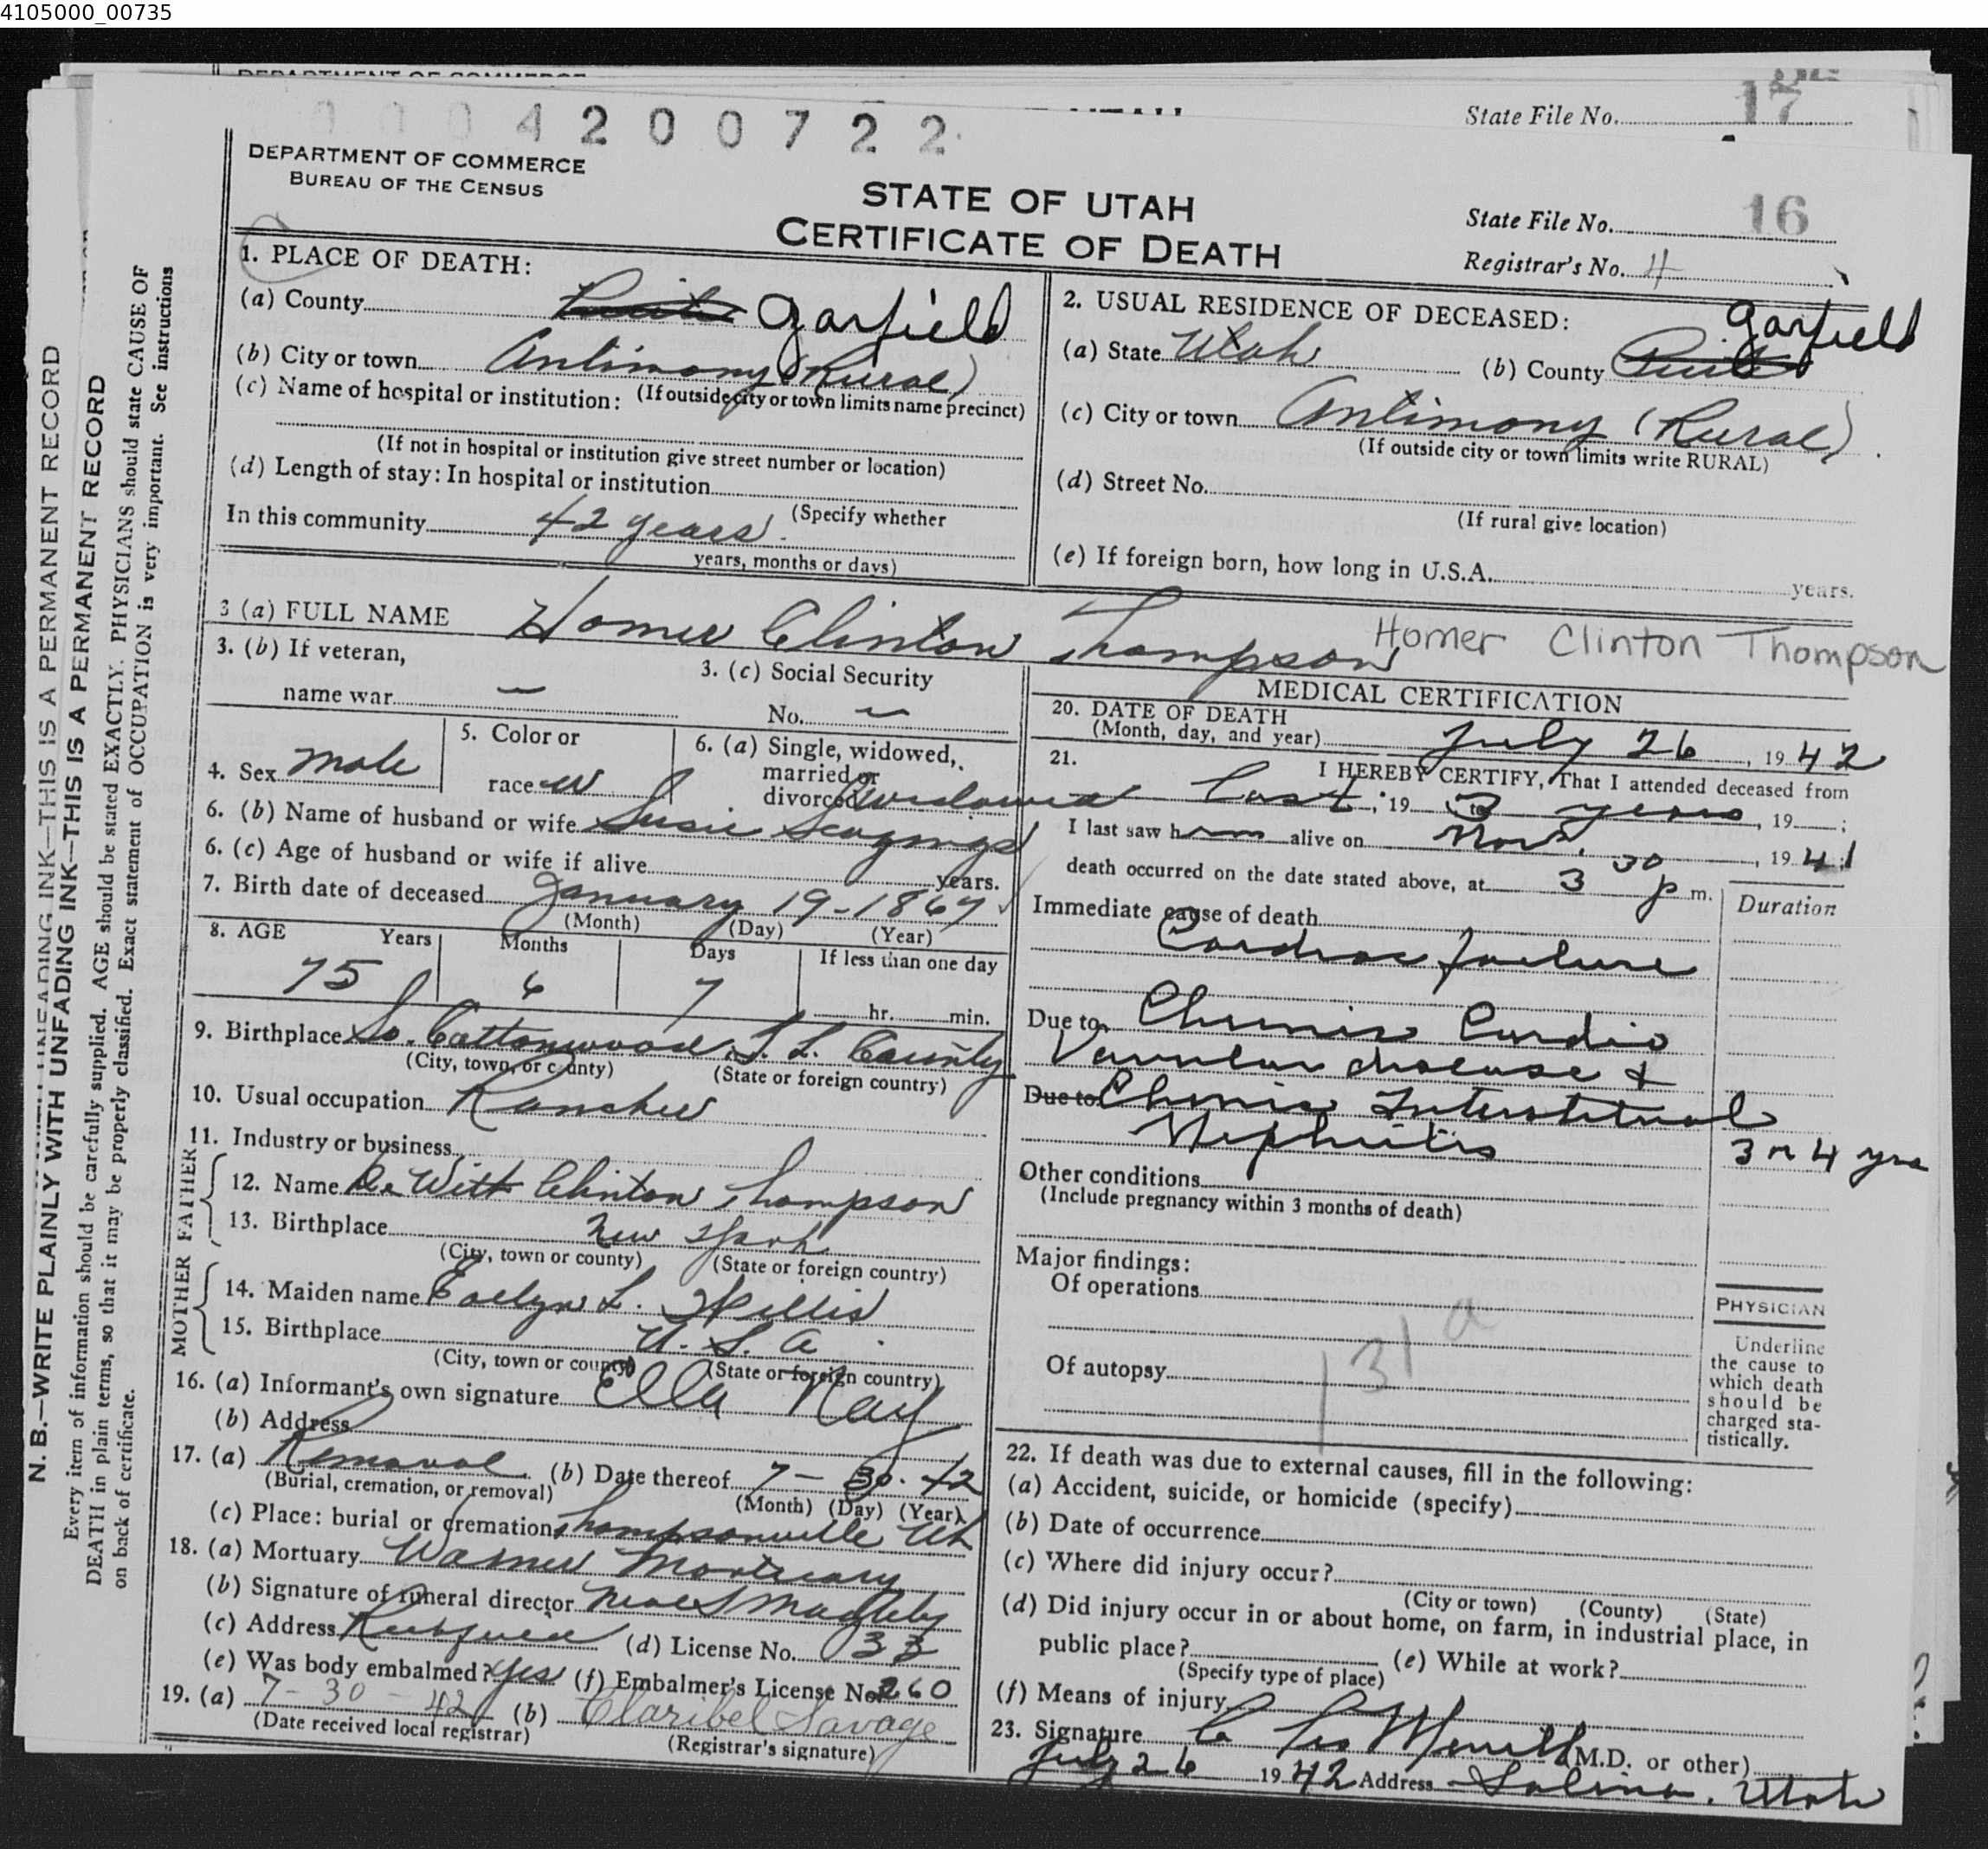 4105000_00735
DEPARTMENT OF COMMERCE
State File No. 17
0004200722
DEPARTMENT OF COMMERCE
BUREAU OF THE CENSUS
STATE OF UTAH
CERTIFICATE OF DEATH
State File No. 16
Registrar's No. 4
1. PLACE OF DEATH:
(a) County Garfield
(b) City or town Antimony (Rural)
(If outside city or town limits name precinct)
(c) Name of hospital or institution:
(If not in hospital or institution give street number or location)
(d) Length of stay: In hospital or institution
(Specify whether
In this community 42 years.
years, months or days)
2. USUAL RESIDENCE OF DECEASED:
(a) State Utah (b) County Garfield
(c) City or town Antimony (Rural)
(If outside city or town limits write RURAL)
(d) Street No.
(If rural give location)
(e) If foreign born, how long in U.S.A. years.
3 (a) FULL NAME Homer Clinton Thompson Homer Clinton Thompson
3. (b) If veteran,
name war —
3. (c) Social Security
No. —
4. Sex male
5. Color or
race W
6. (a) Single, widowed,
married or
divorced widowed
6. (b) Name of husband or wife Susie
6. (c) Age of husband or wife if alive years.
7. Birth date of deceased January 19 - 1867
(Month) (Day) (Year)
8. AGE Years Months Days If less than one day
75 6 7 hr. min.
9. Birthplace So. Cottonwood S. L. County
(City, town, or county) (State or foreign country)
10. Usual occupation Rancher
11. Industry or business
FATHER
12. Name De Witt Clinton Thompson
13. Birthplace New York
(City, town or county) (State or foreign country)
MOTHER
14. Maiden name Evelyn L. Willis
15. Birthplace U. S. A
(City, town or county) (State or foreign country)
16. (a) Informant's own signature Ella Nay
(b) Address
17. (a) Removal (b) Date thereof 7 - 30 - 42
(Burial, cremation, or removal) (Month) (Day) (Year)
(c) Place: burial or cremation Thompsonville Ut
18. (a) Mortuary Warner Mortuary
(b) Signature of funeral director Magleby
(c) Address Richfield (d) License No. 33
(e) Was body embalmed? Yes (f) Embalmer's License No. 260
19. (a) 7 - 30 - 42 (b) Claribel Savage
(Date received local registrar) (Registrar's signature)
MEDICAL CERTIFICATION
20. DATE OF DEATH
(Month, day, and year) July 26, 1942
21. I HEREBY CERTIFY, That I attended deceased from
Last, 19 to 3 years, 19 ;
I last saw him alive on Nov, 1941
death occurred on the date stated above, at 3 30 p m.
Immediate cause of death Duration
Cardiac failure
Due to Chronic Cardio
Vascular disease &
Due to Chronic Interstitual
Nephritis 3 or 4 yrs
Other conditions
(Include pregnancy within 3 months of death)
Major findings:
Of operations
131 a
Of autopsy
PHYSICIAN
Underline
the cause to
which death
should be
charged sta-
tistically.
22. If death was due to external causes, fill in the following:
(a) Accident, suicide, or homicide (specify)
(b) Date of occurrence
(c) Where did injury occur?
(City or town) (County) (State)
(d) Did injury occur in or about home, on farm, in industrial place, in
public place? (e) While at work?
(Specify type of place)
(f) Means of injury
23. Signature Merrill (M.D. or other)
July 26 1942 Address Salina, Utah
N. B.—WRITE PLAINLY WITH UNFADING INK—THIS IS A PERMANENT RECORD
Every item of information should be carefully supplied. AGE should be stated EXACTLY. PHYSICIANS should state CAUSE OF
DEATH in plain terms, so that it may be properly classified. Exact statement of OCCUPATION is very important. See instructions
on back of certificate.